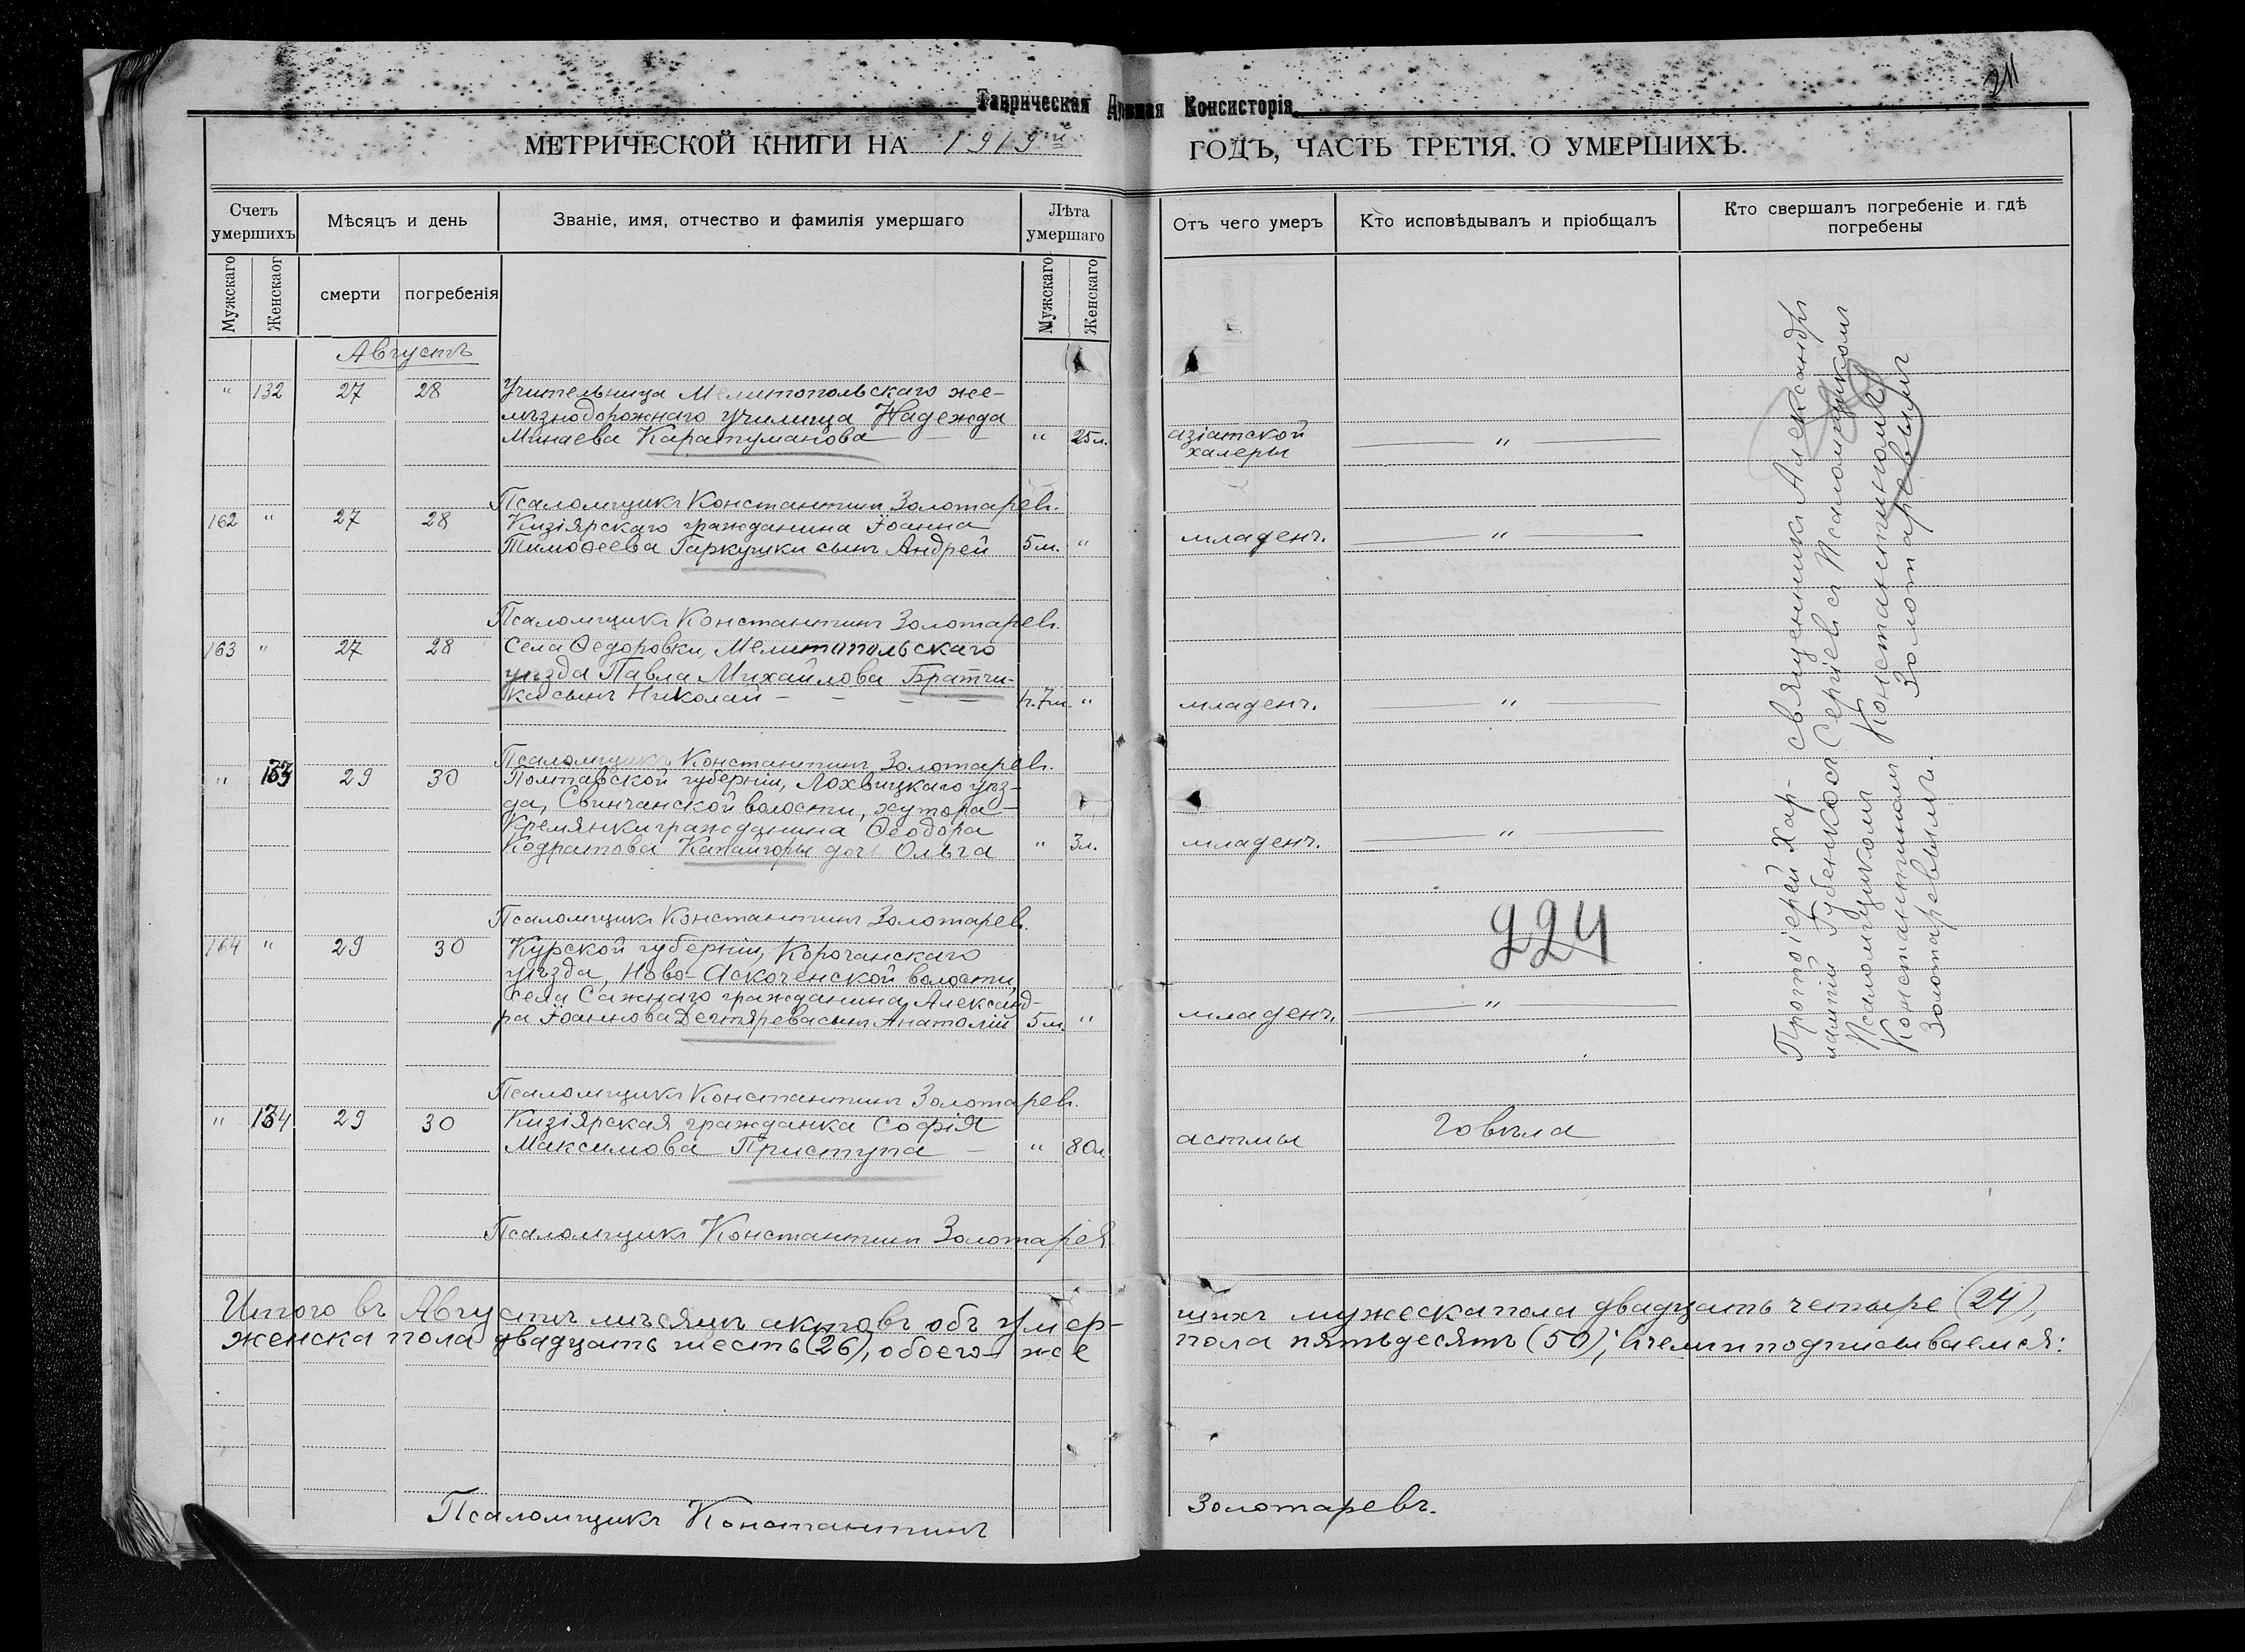 211
Таврическая Духовная Консисторія
МЕТРИЧЕСКОЙ КНИГИ НА 1919й ГОДЪ, ЧАСТЬ ТРЕТІЯ. О УМЕРШИХЪ.
Счетъ умершихъ
Мѣсяцъ и день
Званіе, имя, отчество и фамилія умершаго
Лѣта умершаго
Отъ чего умеръ
Кто исповѣдывалъ и пріобщалъ
Кто свершалъ погребеніе и гдѣ погребены
Мужскаго
Женскаог
смерти
погребенія
Мужскаго
Женскаго
Августъ
" 132 27 28 Учительница Мелитопольскаго же-
лѣзнодорожнаго училища Надежда
Минаева Каратуманова — — " 25 л. азіатской
халеры "
Псаломщикъ Константинъ Золотаревъ.
162 " 27 28 Кизіярскаго гражданина Іоанна
Тимоѳеева Гаркушки сынъ Андрей 5 м. " младенч. "
Псаломщикъ Константинъ Золотаревъ.
163 " 27 28 Села Ѳедоровки, Мелитопольскаго
уѣзда Павла Михайлова Братчи-
ка сынъ Николай — — — — 7 м. " младенч. "
Псаломщикъ Константинъ Золотаревъ.
" 133 29 30 Полтавской губерніи, Лохвицкаго уѣз-
да, Свинчанской волости, хутора
Кремянки гражданина Ѳеодора
Кодратова Капаигоры дочь Ольга " 3 л. младенч. "
Псаломщикъ Константинъ Золотарев.
164 " 29 30 Курской губерніи, Корочанскаго
уѣзда, Ново-Аскоченской волости,
села Сажнаго гражданина Александ-
ра Іоаннова Дегтярева сынъ Анатолій 5 м. " младенч. "
224
Псаломщикъ Константинъ Золотаревъ.
" 134 29 30 Кизіярская гражданка Софія
Максимова Приступа — " 80 л. астмы Говѣла
Псаломщикъ Константинъ Золотарев
Протоіерей Хар-
лампій Губенко съ
Псаломщикомъ
Константиномъ
Золотаревымъ.
Священникъ Александръ
Сергіевъ съ Псаломщикомъ
Константиномъ
Золотаревымъ
Итого въ Августѣ мѣсяцѣ актовъ объ умер-
шихъ мужеска пола двадцать четыре (24),
женска пола двадцать шесть (26), обоего же
пола пятьдесятъ (50); въ чемъ и подписываемся:
Псаломщикъ Константинъ Золотаревъ.